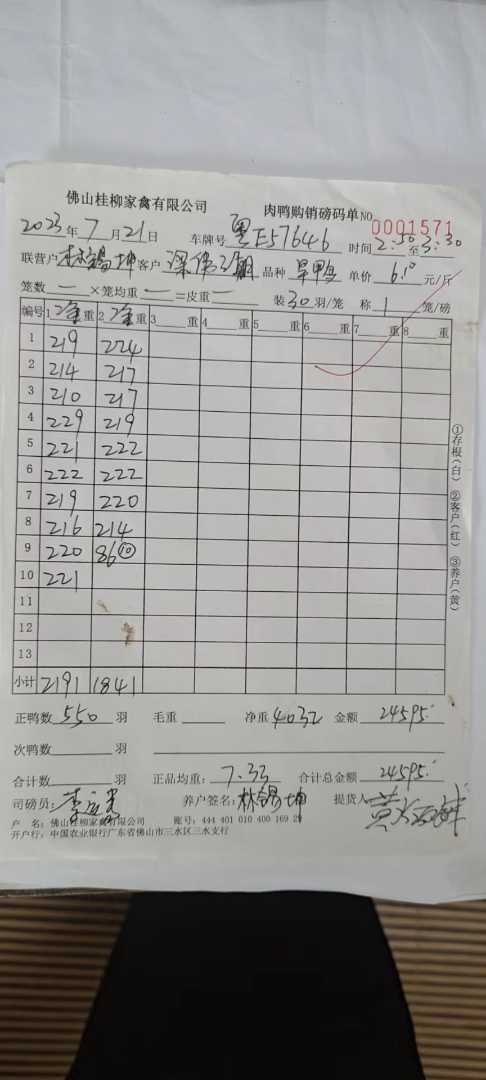 佛山桂柳家禽有限公司 肉鸭购销磅码单 NO 0001571
2023年7月21日 车牌号 粤E57646 时间 2:50至3:30
联营户 林锡坤 客户 品种 旱鸭 单价 6.10 元/斤
笼数 一 ×笼均重 一 =皮重 一 装30羽/笼 称1笼/磅
编号 1净重 2净重 3 重 4 重 5 重 6 重 7 重 8 重
1 219 224
2 214 217
3 210 217
4 229 219
5 221 222
6 222 222
7 219 220
8 216 214
9 220 86⑩
10 221
11
12
13
小计 2191 1841
正鸭数 550 羽 毛重 净重 4032 金额 24595
次鸭数 羽
合计数 羽 正品均重: 7.33 合计总金额 24595
司磅员: 养户签名: 林锡坤 提货人
户 名: 佛山桂柳家禽有限公司 账号: 444 401 010 400 169 29
开户行: 中国农业银行广东省佛山市三水区三水支行
①存根(白) ②客户(红) ③养户(黄)